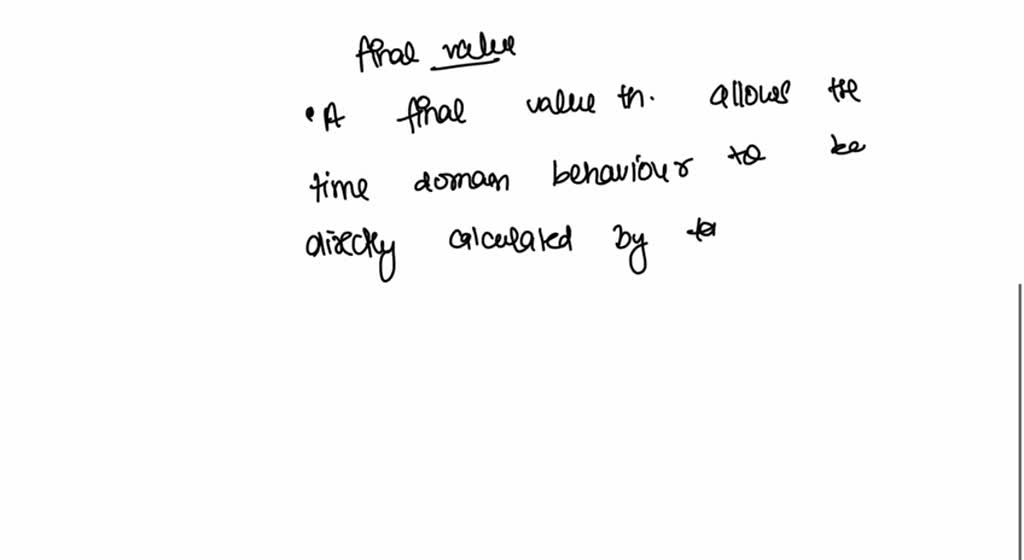 final value
• A final value th. allows the
time domain behaviour to be
directly calculated by ta